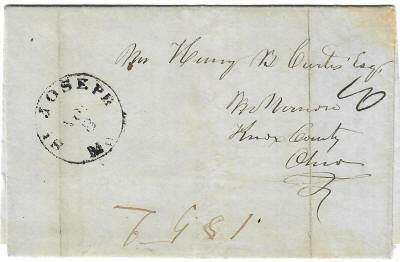 ST JOSEPH
Mo
Mr Henry B Curtis Esq.
Mt Vernon
Knox County
Ohio
10